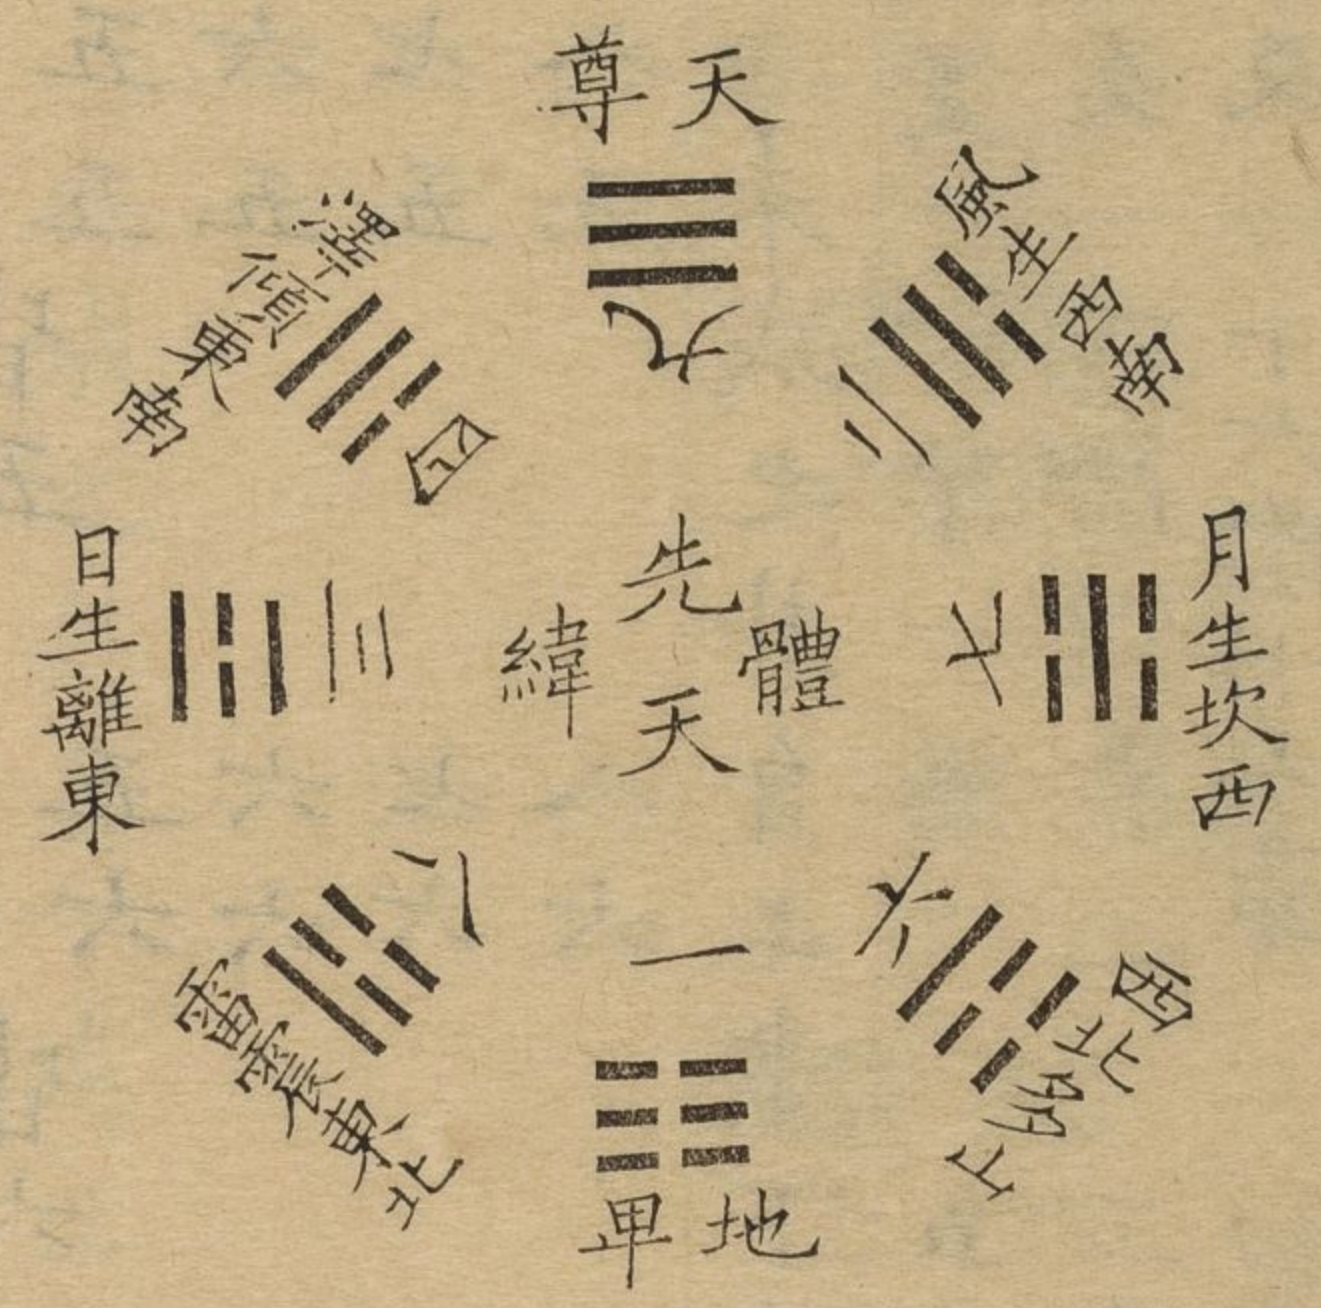 天尊
九
風生西南
二
月生坎西
七
西北多山
六
地卑
一
雷震東北
八
日生離東
三
澤傾東南
四
先天
體
緯